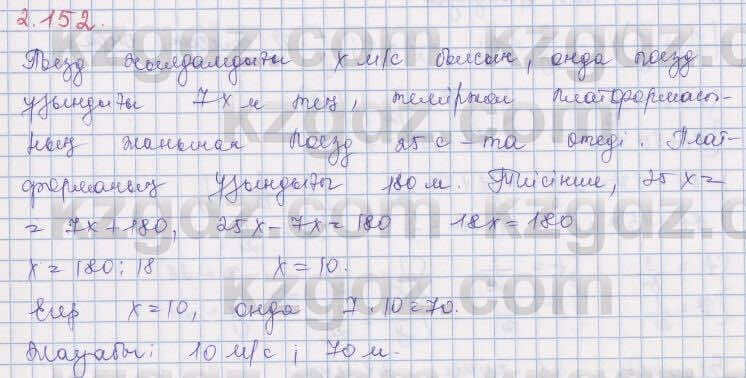 2.152.
Поезд жылдамдығы x м/с болсын, онда поезд
ұзындығы 7x м тең, теміржол платформасы-
ның жанынан поезд 25 с-та өтеді. Плат-
форманың ұзындығы 180 м. Түсінік, 25x =
= 7x + 180, 25x - 7x = 180 18x = 180
x = 180 : 18 x = 10.
Егер x = 10, онда 7 · 10 = 70.
Жауабы: 10 м/с ; 70 м.
kzgdz.com